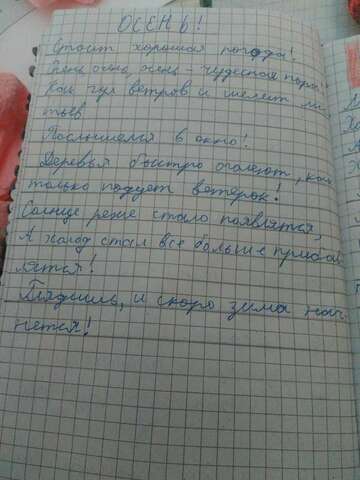 ОСЕНЬ!
Стоит хорошая погода!
осень чудесная пора!
гул ветров и шелест ли
стьев
Послышился в окно!
Деревья быстро оголеют, как
только подует ветерок!
Солнце реже стало появлятся,
А холод стал все больше прибав
лятся!
Глядишь, и скоро зима нач
нется!